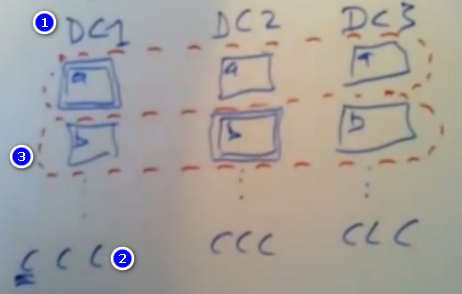 1 DC1 DC2 DC3
a a a
b b b
3
C C C 2 C C C C C C